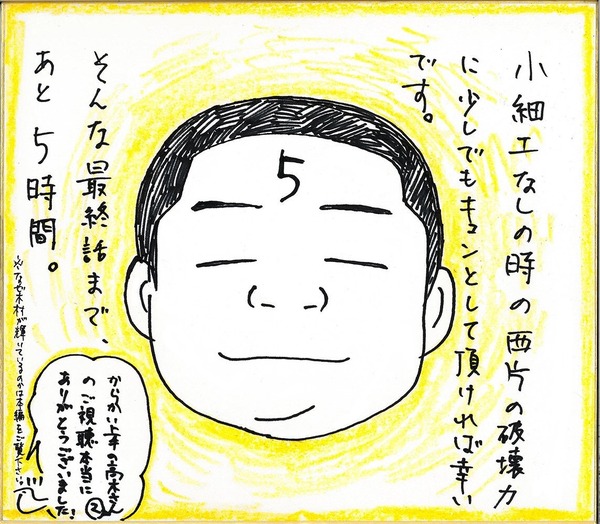 小細工なしの時の西片の破壊力
に少しでもキュンとして頂ければ幸い
です。
5
そんな最終話まで、
あと5時間。
※なぜ木村が輝いているのかは本編をご覧下さい。
からかい上手の高木さん
②のご視聴本当に
ありがとうございました!